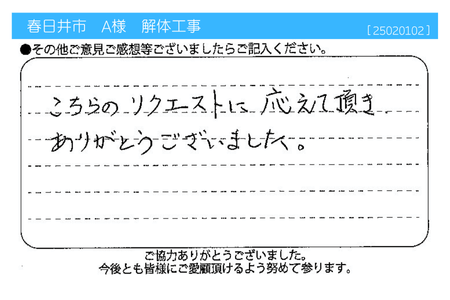 春日井市　A様　解体工事 [25020102]
●その他ご意見ご感想等ございましたらご記入ください。
こちらのリクエストに応えて頂き
ありがとうございました。
ご協力ありがとうございました。
今後とも皆様にご愛顧頂けるよう努めて参ります。